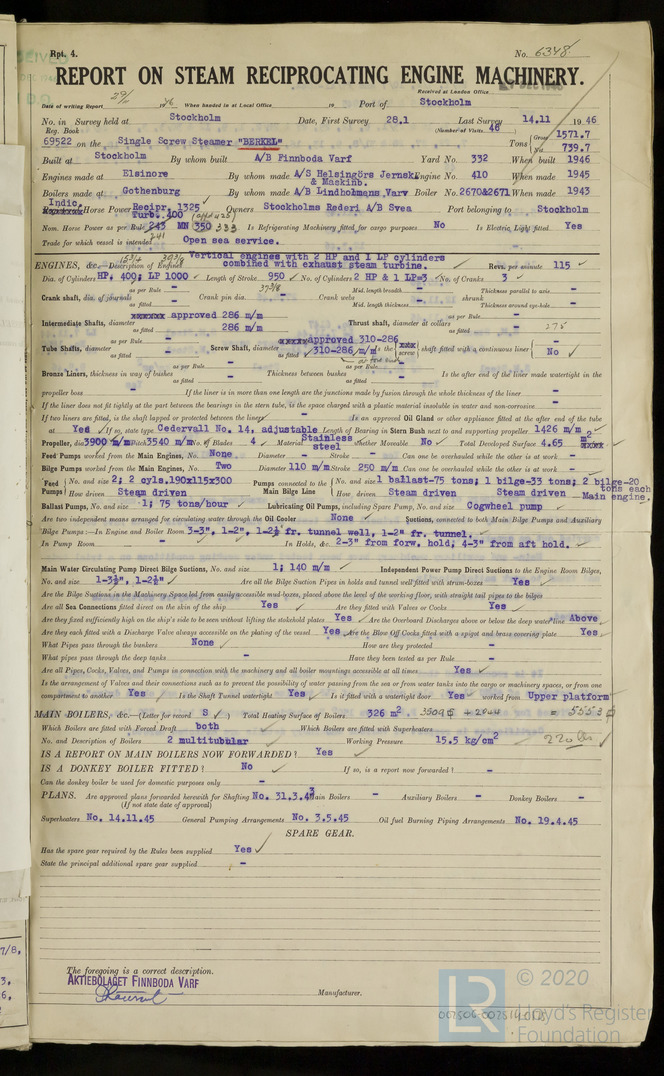 Rpt. 4.
No. 6348
REPORT ON STEAM RECIPROCATING ENGINE MACHINERY.
Received at London Office
Date of writing Report 29/ 1946 When handed in at Local Office 19 Port of Stockholm
No. in Survey held at Stockholm Date, First Survey 28.1 Last Survey 14.11 1946
Reg. Book (Number of Visits 46)
69522 on the Single Screw Steamer "BERKEL" Tons Gross 1571.7
Net 739.7
Built at Stockholm By whom built A/B Finnboda Varf Yard No. 332 When built 1946
Engines made at Elsinore By whom made A/S Helsingörs Jernsk. & Maskinb. Engine No. 410 When made 1945
Boilers made at Gothenburg By whom made A/B Lindholmens Varv Boiler No. 2670&2671 When made 1943
Indic. Horse Power Recipr. 1325 Turb. 400 Owners Stockholms Rederi A/B Svea Port belonging to Stockholm
Nom. Horse Power as per Rule 243 MN 350 333 Is Refrigerating Machinery fitted for cargo purposes No Is Electric Light fitted Yes
241
Trade for which vessel is intended Open sea service.
ENGINES, &c.—Description of Engines Vertical engines with 2 HP and 1 LP cylinders combined with exhaust steam turbine. Revs. per minute 115
Dia. of Cylinders HP. 400; LP 1000 Length of Stroke 950 No. of Cylinders 2 HP & 1 LP=3 No. of Cranks 3
37 3/8
Crank shaft, dia. of journals as per Rule - as fitted - Crank pin dia. - Crank webs Mid. length breadth - Mid. length thickness - shrunk Thickness parallel to axis - Thickness around eye-hole -
Intermediate Shafts, diameter approved 286 m/m as fitted 286 m/m Thrust shaft, diameter at collars as per Rule - as fitted 275
Tube Shafts, diameter as per Rule - as fitted - Screw Shaft, diameter approved 310-286 as fitted 310-286 m/m Is the screw shaft fitted with a continuous liner - No
Bronze Liners, thickness in way of bushes as per Rule - as fitted - Thickness between bushes as per Rule - as fitted - Is the after end of the liner made watertight in the
propeller boss - If the liner is in more than one length are the junctions made by fusion through the whole thickness of the liner -
If the liner does not fit tightly at the part between the bearings in the stern tube, is the space charged with a plastic material insoluble in water and non-corrosive -
If two liners are fitted, is the shaft lapped or protected between the liners - Is an approved Oil Gland or other appliance fitted at the after end of the tube
at Yes If so, state type Cedervall No. 14. adjustable Length of Bearing in Stern Bush next to and supporting propeller 1426 m/m
Propeller, dia. 3900 m/m Pitch 3540 m/m No. of Blades 4 Material Stainless steel whether Moveable No Total Developed Surface 4.65 m2
Feed Pumps worked from the Main Engines, No. None Diameter - Stroke - Can one be overhauled while the other is at work -
Bilge Pumps worked from the Main Engines, No. Two Diameter 110 m/m Stroke 250 m/m Can one be overhauled while the other is at work -
Feed Pumps No. and size 2; 2 cyls. 190x115x300 Pumps connected to the Main Bilge Line No. and size 1 ballast-75 tons; 1 bilge-33 tons; 2 bilge-20 tons each
How driven Steam driven How driven Steam driven Steam driven Main engine.
Ballast Pumps, No. and size 1; 75 tons/hour Lubricating Oil Pumps, including Spare Pump, No. and size Cogwheel pump
Are two independent means arranged for circulating water through the Oil Cooler None Suctions, connected to both Main Bilge Pumps and Auxiliary
Bilge Pumps:—In Engine and Boiler Room 3-3", 1-2", 1-2½ fr. tunnel well, 1-2" fr. tunnel.
In Pump Room - In Holds, &c. 2-3" from forw. hold; 4-3" from aft hold.
Main Water Circulating Pump Direct Bilge Suctions, No. and size 1; 140 m/m Independent Power Pump Direct Suctions to the Engine Room Bilges,
No. and size 1-3½", 1-2½" Are all the Bilge Suction Pipes in holds and tunnel well fitted with strum-boxes Yes
Are the Bilge Suctions in the Machinery Space led from easily accessible mud-boxes, placed above the level of the working floor, with straight tail pipes to the bilges
Are all Sea Connections fitted direct on the skin of the ship Yes Are they fitted with Valves or Cocks Yes
Are they fixed sufficiently high on the ship's side to be seen without lifting the stokehold plates Yes Are the Overboard Discharges above or below the deep water line Above
Are they each fitted with a Discharge Valve always accessible on the plating of the vessel Yes Are the Blow Off Cocks fitted with a spigot and brass covering plate Yes
What Pipes pass through the bunkers None How are they protected -
What pipes pass through the deep tanks - Have they been tested as per Rule -
Are all Pipes, Cocks, Valves, and Pumps in connection with the machinery and all boiler mountings accessible at all times Yes
Is the arrangement of Valves and their connections such as to prevent the possibility of water passing from the sea or from water tanks into the cargo or machinery spaces, or from one
compartment to another Yes Is the Shaft Tunnel watertight Yes Is it fitted with a watertight door Yes worked from Upper platform
MAIN BOILERS, &c.—(Letter for record S) Total Heating Surface of Boilers 326 m2 3509 + 2044 = 5553
Which Boilers are fitted with Forced Draft both Which Boilers are fitted with Superheaters
No. and Description of Boilers 2 multitubular Working Pressure 15.5 kg/cm2 220 lbs
IS A REPORT ON MAIN BOILERS NOW FORWARDED? Yes
IS A DONKEY BOILER FITTED? No If so, is a report now forwarded? -
Can the donkey boiler be used for domestic purposes only -
PLANS. Are approved plans forwarded herewith for Shafting No. 31.3.43 Main Boilers - Auxiliary Boilers - Donkey Boilers -
(If not state date of approval)
Superheaters No. 14.11.45 General Pumping Arrangements No. 3.5.45 Oil fuel Burning Piping Arrangements No. 19.4.45
SPARE GEAR.
Has the spare gear required by the Rules been supplied Yes
State the principal additional spare gear supplied -
The foregoing is a correct description.
AKTIEBOLAGET FINNBODA VARF
Manufacturer.
© 2020
Lloyd's Register
Foundation